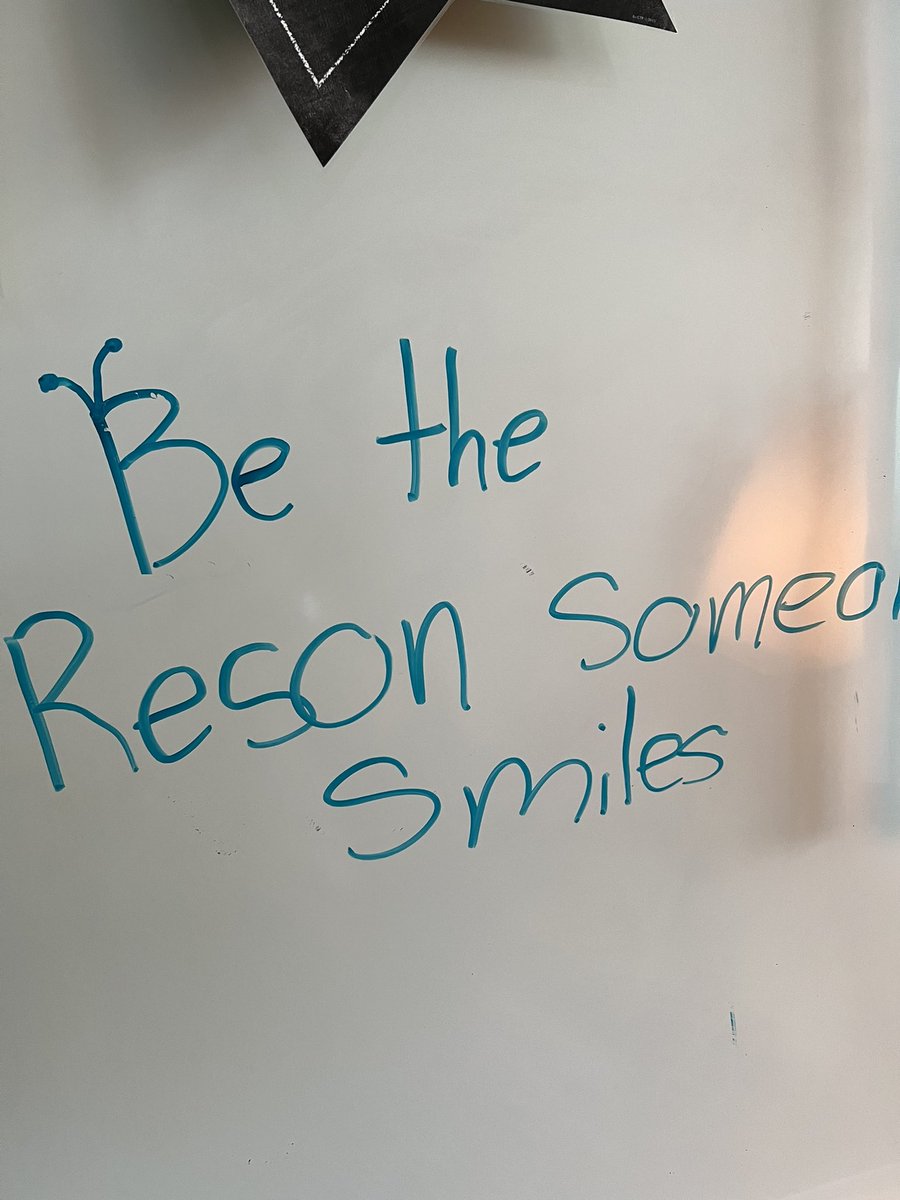 Be the
Reson Someo
Smiles